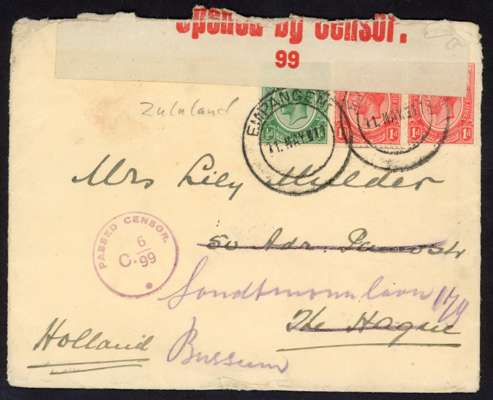 Opened by Censor.
99
Zululand
EMPANGENI
11. MAY. 17
11. MAY. 17
½d 1d 1d
Mrs Lily Mulder
PASSED CENSOR.
6
C. 99
50 Adr.
174
The Hague
Holland
Bussum